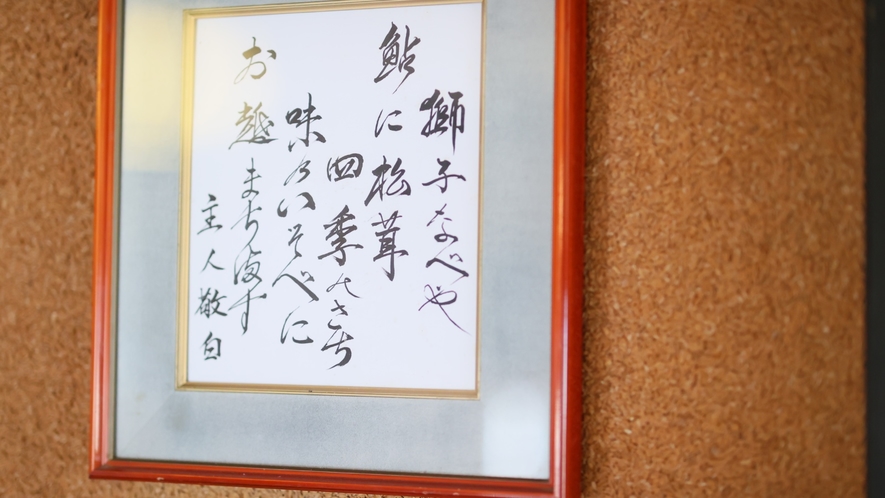 獅子なべや
鮎に松茸
四季のさち
味のいそべに
お越まち海す
主人敬白